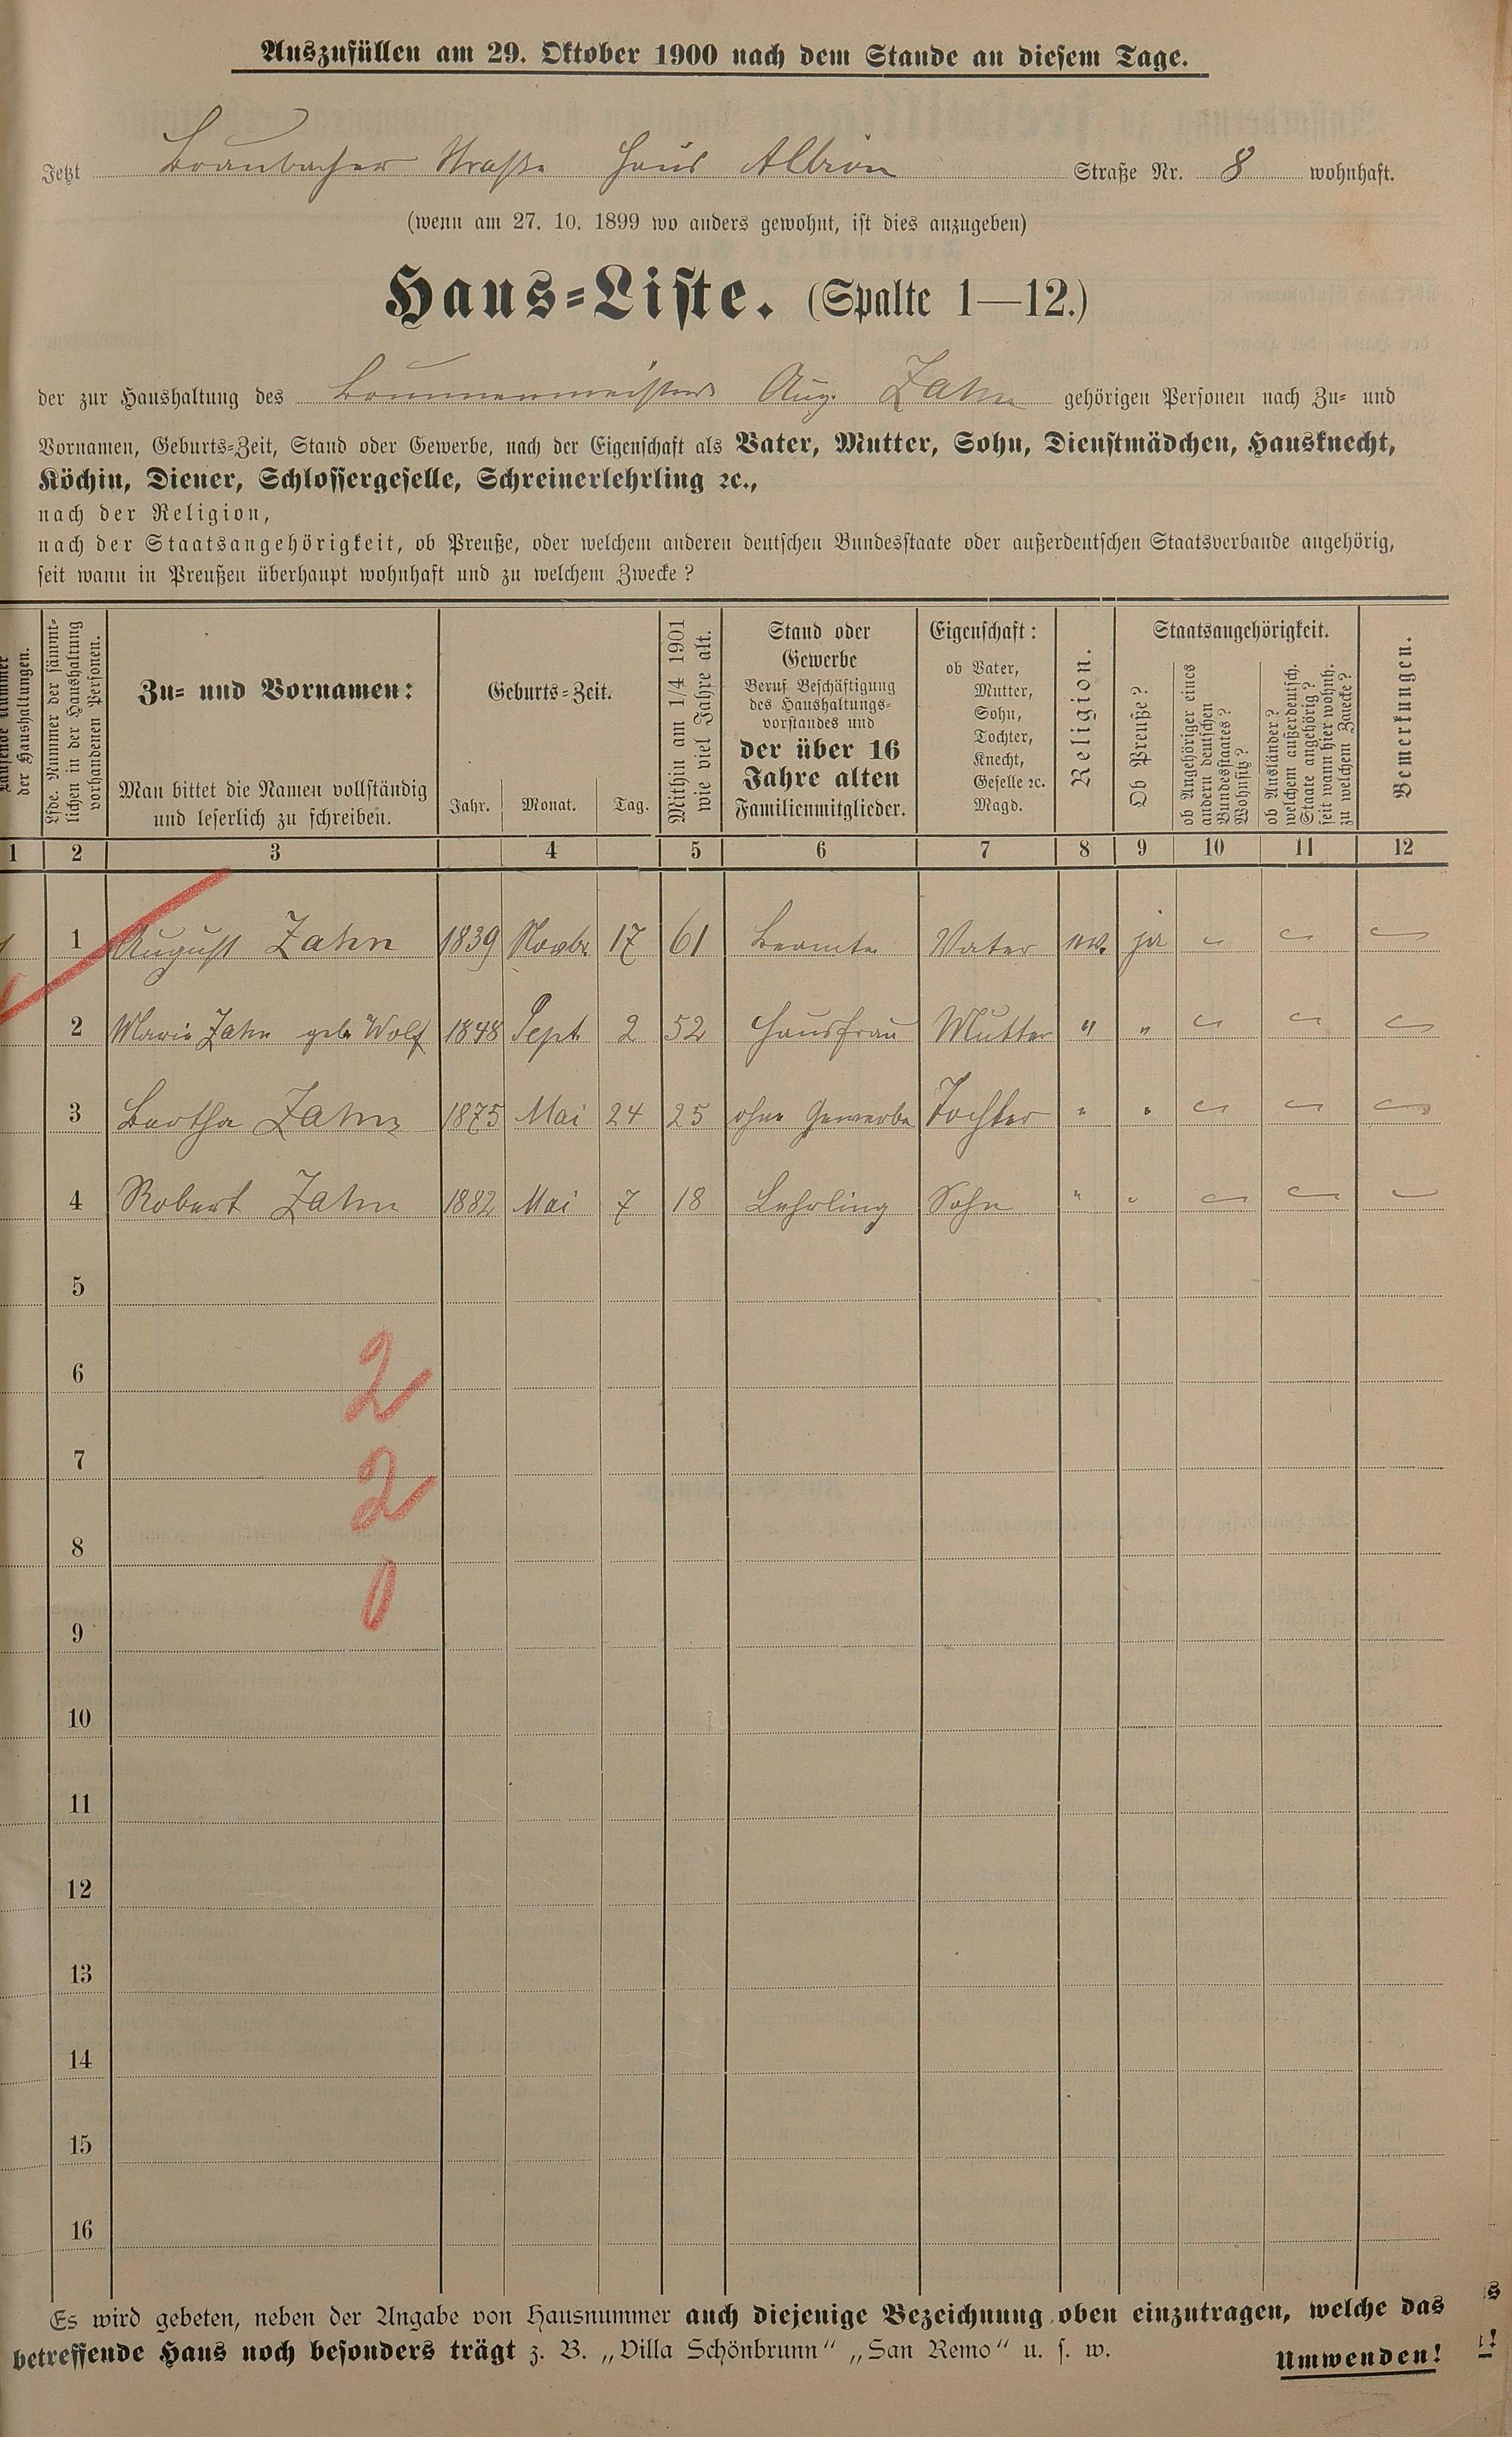 Auszufüllen am 29. Oktober 1900 nach dem Stande an diesem Tage.
Jetzt Braubacher Straße Haus Albion Straße Nr. 8 wohnhaft.
(wenn am 27. 10. 1899 wo anders gewohnt, ist dies anzugeben)
Haus-Liste. (Spalte 1—12.)
der zur Haushaltung des Brunnenmeisters Aug. Zahn gehörigen Personen nach Zu- und
Vornamen, Geburts-Zeit, Stand oder Gewerbe, nach der Eigenschaft als Vater, Mutter, Sohn, Dienstmädchen, Hausknecht,
Köchin, Diener, Schlossergeselle, Schreinerlehrling ꝛc.,
nach der Religion,
nach der Staatsangehörigkeit, ob Preuße, oder welchem anderen deutschen Bundesstaate oder außerdeutschen Staatsverbande angehörig,
seit wann in Preußen überhaupt wohnhaft und zu welchem Zwecke?
Laufende Nummer
der Haushaltungen.
Lfde. Nummer der sämmt-
lichen in der Haushaltung
vorhandenen Personen.
Zu- und Vornamen:
Man bittet die Namen vollständig
und leserlich zu schreiben.
Geburts-Zeit.
Jahr. Monat. Tag.
Mithin am 1/4 1901
wie viel Jahre alt.
Stand oder
Gewerbe
Beruf Beschäftigung
des Haushaltungs-
vorstandes und
der über 16
Jahre alten
Familienmitglieder.
Eigenschaft:
ob Vater,
Mutter,
Sohn,
Tochter,
Knecht,
Geselle ꝛc.
Magd.
Religion.
Staatsangehörigkeit.
Ob Preuße?
ob Angehöriger eines
andern deutschen
Bundesstaates?
Wohnsitz?
ob Ausländer?
welchem außerdeutsch.
Staate angehörig?
seit wann hier wohnh.
zu welchem Zwecke?
Bemerkungen.
1 2 3 4 5 6 7 8 9 10 11 12
1 August Zahn 1839 Novbr. 17 61 Beamter Vater ev. ja
2 Marie Zahn geb. Wolf 1848 Sept. 2 52 Hausfrau Mutter " "
3 Bertha Zahn 1875 Mai 24 25 ohne Gewerbe Tochter " "
4 Robert Zahn 1882 Mai 7 18 Lehrling Sohn " "
5
6 2
7 2
8
9 0
10
11
12
13
14
15
16
Es wird gebeten, neben der Angabe von Hausnummer auch diejenige Bezeichnung oben einzutragen, welche das
betreffende Haus noch besonders trägt z. B. „Villa Schönbrunn“ „San Remo“ u. s. w.
Umwenden!